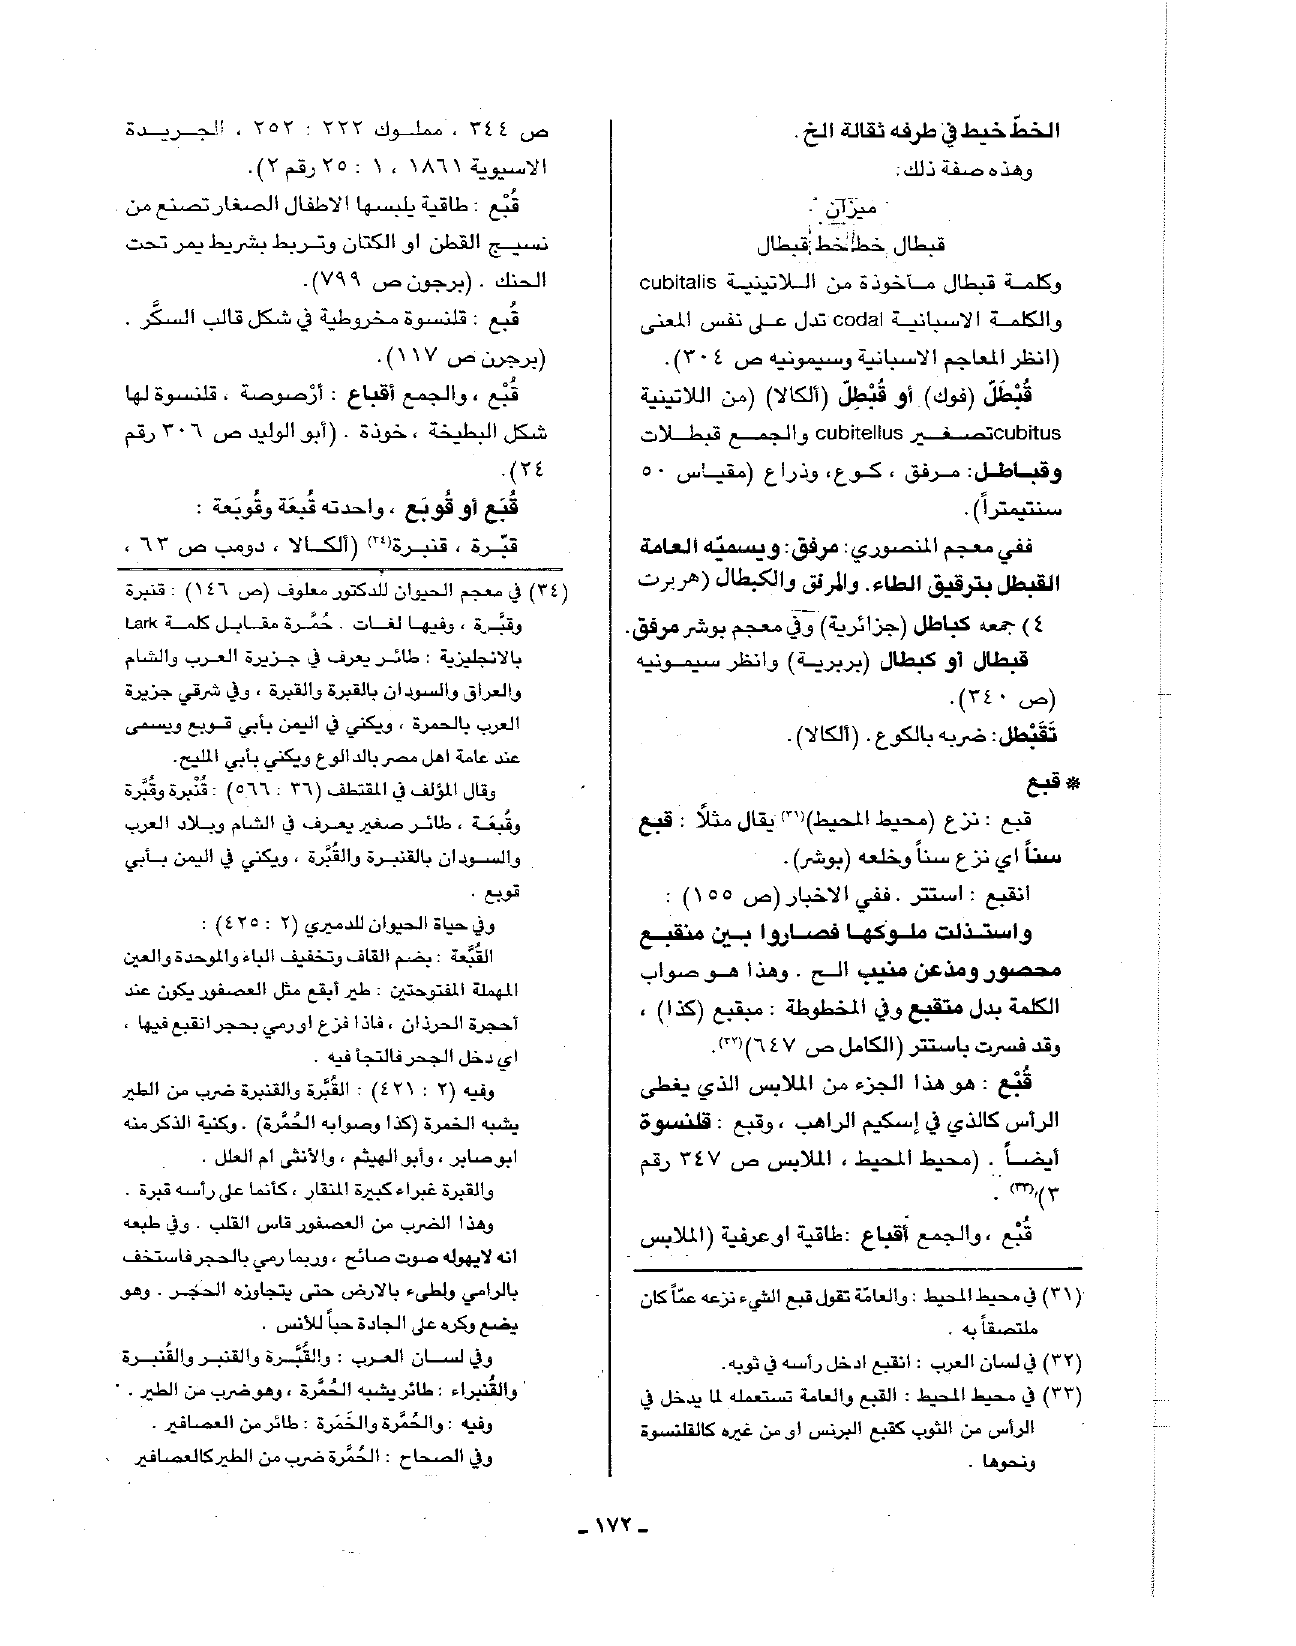 الخطّ خيط في طرفه ثقالة الخ .
وهذه صفة ذلك:
ميزان
قبطال خط خط قبطال
وكلمة قبطال مأخوذة من اللاتينية cubitalis
والكلمة الاسبانية codal تدل على نفس المعنى
(انظر المعاجم الاسبانية وسيمونيه ص ٣٠٤).
قُبْطَلّ (فوك) أو قُبْطِلّ (ألكالا) (من اللاتينية
cubitus تصغير cubitellus والجمع قبطلات
وقباطل: مرفق ، كوع، وذراع (مقياس ٥٠
سنتيمتراً).
ففي معجم المنصوري: مرفق: ويسميّه العامة
القبطل بترقيق الطاء. والمرفق والكبطال (هربرت
٤) جمعه كباطل (جزائرية) وفي معجم بوشر مرفق.
قبطال أو كبطال (بربرية) وانظر سيمونيه
(ص ٣٤٠).
تَقَبْطل: ضربه بالكوع. (ألكالا).
* قبع
قبع : نزع (محيط المحيط)(٣١) يقال مثلاً : قبع
سناً اي نزع سناً وخلعه (بوشر).
انقبع : استتر . ففي الاخبار (ص ١٥٥) :
واستذلت ملوكها فصاروا بين منقبع
محصور ومذعن منيب الخ . وهذا هو صواب
الكلمة بدل متقبع وفي المخطوطة : مبقبع (كذا) ،
وقد فسرت باستتر (الكامل ص ٦٤٧)(٣٢).
قُبْع : هو هذا الجزء من الملابس الذي يغطى
الرأس كالذي في إسكيم الراهب ، وقبع : قلنسوة
أيضاً . (محيط المحيط ، الملابس ص ٣٤٧ رقم
٣)(٣٣) .
قُبْع ، والجمع أقباع :طاقية او عرقية (الملابس
(٣١) في محيط المحيط : والعامّة تقول قبع الشيء نزعه عمّا كان
ملتصقاً به .
(٣٢) في لسان العرب : انقبع ادخل رأسه في ثوبه.
(٣٣) في محيط المحيط : القبع والعامة تستعمله لما يدخل في
الرأس من الثوب كقبع البرنس او من غيره كالقلنسوة
ونحوها .
ص ٣٤٤ ، مملوك ٢٢٢ : ٢٥٢ ، الجريدة
الاسيوية ١٨٦١ ، ١ : ٢٥ رقم ٢).
قُبْع : طاقية يلبسها الاطفال الصغار تصنع من
نسيج القطن او الكتان وتربط بشريط يمر تحت
الحنك . (برجون ص ٧٩٩).
قُبع : قلنسوة مخروطية في شكل قالب السكَّر .
(برجرن ص ١١٧).
قُبْع ، والجمع أقباع : أرْصوصة ، قلنسوة لها
شكل البطيخة ، خوذة . (أبو الوليد ص ٣٠٦ رقم
٢٤).
قُبَع أو قُوبَع ، واحدته قُبعَة وقُوبَعة :
قبّرة ، قنبرة(٣٤) (ألكالا ، دومب ص ٦٣ ،
(٣٤) في معجم الحيوان للدكتور معلوف (ص ١٤٦) : قنبرة
وقبَّرة ، وفيها لغات . حُمَّرة مقابل كلمة Lark
بالانجليزية : طائر يعرف في جزيرة العرب والشام
والعراق والسودان بالقبرة والقبرة ، وفي شرقي جزيرة
العرب بالحمرة ، ويكني في اليمن بأبي قوبع ويسمى
عند عامة اهل مصر بالدالوع ويكني بأبي المليح.
وقال المؤلف في المقتطف (٣٦ : ٥٦٦) : قُنْبرة وقُبَّرة
وقُبعَة ، طائر صغير يعرف في الشام وبلاد العرب
والسودان بالقنبرة والقُبَّرة ، ويكني في اليمن بأبي
قوبع .
وفي حياة الحيوان للدميري (٢ : ٤٢٥) :
القُبَّعة : بضم القاف وتخفيف الباء والموحدة والعين
المهملة المفتوحتين : طير أبقع مثل العصفور يكون عند
أحجرة الجرذان ، فاذا فزع او رمي بحجر انقبع فيها ،
اي دخل الجحر فالتجأ فيه .
وفيه (٢ : ٤٢١) : القُبَّرة والقنبرة ضرب من الطير
يشبه الخمرة (كذا وصوابه الحُمَّرة) . وكنية الذكر منه
ابو صابر ، وأبو الهيثم ، والأنثى ام العلل .
والقبرة غبراء كبيرة المنقار ، كأنما على رأسه قبرة .
وهذا الضرب من العصفور قاس القلب . وفي طبعه
انه لا يهوله صوت صائح ، وربما رمي بالحجر فاستخف
بالرامي ولطىء بالارض حتى يتجاوزه الحجر . وهو
يضع وكره على الجادة حباً للأنس .
وفي لسان العرب : والقُبَّرة والقنبر والقُنبرة
والقُنبراء : طائر يشبه الحُمَّرة ، وهو ضرب من الطير .
وفيه : والحُمَّرة والحُمَرة : طائر من العصافير .
وفي الصحاح : الحُمَّرة ضرب من الطير كالعصافير
ـ ١٧٢ ـ